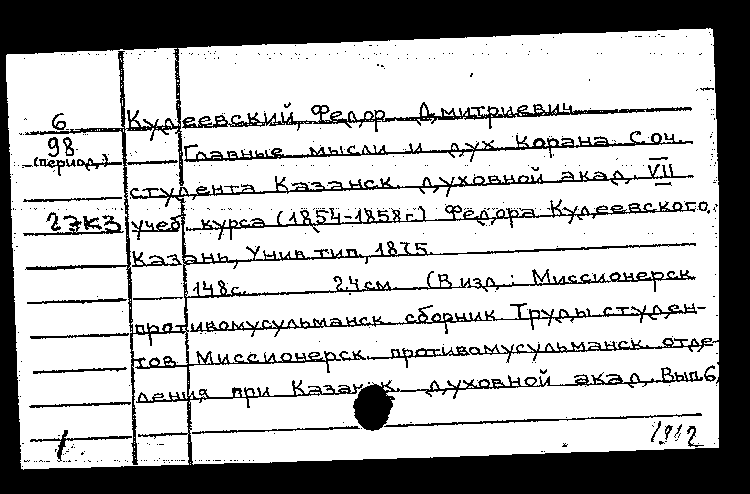 6 Кудеевский, Федор Дмитриевич
98 Главные мысли и дух Корана. Соч.
(период.)
студента Казанск. духовной акад. VII
2 экз учеб. курса (1854-1858г.) Федора Кудеевского.
Казань, Унив. тип., 1875.
148с. 24см. (В изд.: Миссионерск.
противомусульманск. сборник Труды студен-
тов Миссионерск. противомусульманск. отде-
ления при Казанск. духовной акад. Вып.6)